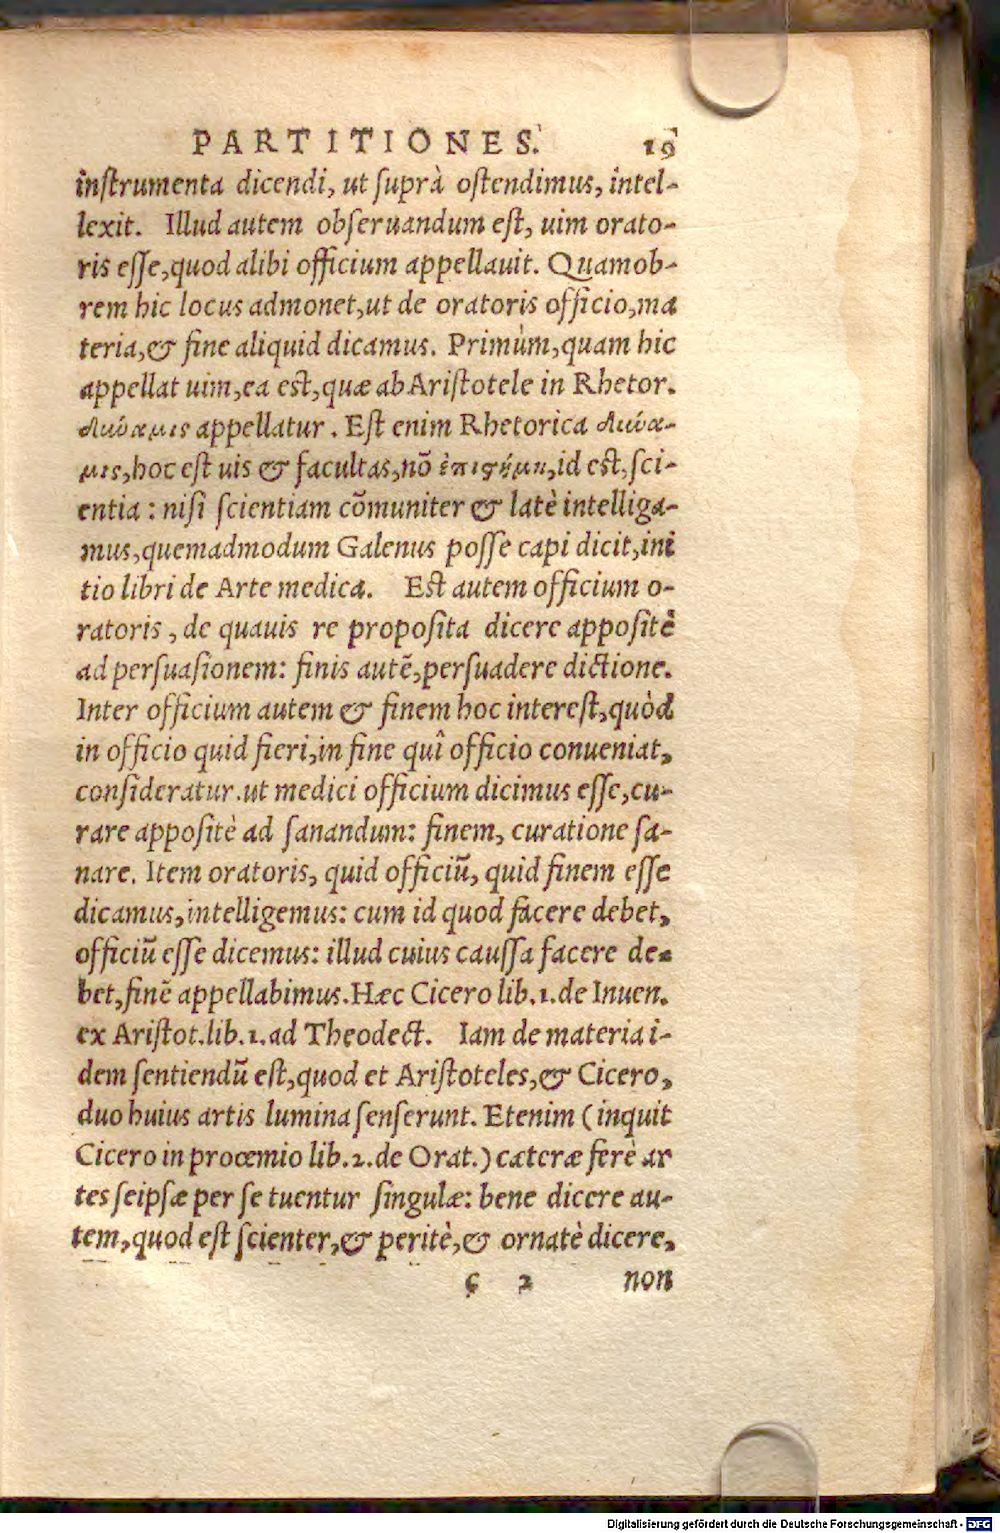 PARTITIONES. 19
inſtrumenta dicendi, ut ſuprà oſtendimus, intel-
lexit. Illud autem obſeruandum eſt, uim orato-
ris eſſe, quod alibi officium appellauit. Quamob-
rem hic locus admonet, ut de oratoris officio, ma
teria, & fine aliquid dicamus. Primùm, quam hic
appellat uim, ea est, quæ ab Ariſtotele in Rhetor.
δύναμις appellatur. Eſt enim Rhetorica δύνα-
μις, hoc eſt uis & facultas, nõ ἐπιςήμη, id est, ſci-
entia: niſi ſcientiam cõmuniter & latè intelliga-
mus, quemadmodum Galenus poſſe capi dicit, ini
tio libri de Arte medica. Est autem officium o-
ratoris, de quauis re propoſita dicere appoſitè
ad perſuaſionem: finis autē, perſuadere dictione.
Inter officium autem & finem hoc intereſt, quòd
in officio quid fieri, in fine quî officio conueniat,
conſideratur. ut medici officium dicimus eſſe, cu-
rare appoſitè ad ſanandum: finem, curatione ſa-
nare. Item oratoris, quid officiũ, quid finem eſſe
dicamus, intelligemus: cum id quod facere debet,
officiũ eſſe dicemus: illud cuius cauſſa facere de-
bet, finẽ appellabimus. Hæc Cicero lib. 1. de Inuen.
ex Ariſtot. lib. 1. ad Theodect. Iam de materia i-
dem ſentiendũ eſt, quod et Ariſtoteles, & Cicero,
duo huius artis lumina ſenſerunt. Etenim (inquit
Cicero in proœmio lib. 2. de Orat.) cæteræ ferè ar
tes ſeipſæ per ſe tuentur ſingulæ: bene dicere au-
tem, quod eſt ſcienter, & peritè, & ornatè dicere,
c 2 non
Digitalisierung gefördert durch die Deutsche Forschungsgemeinschaft - DFG